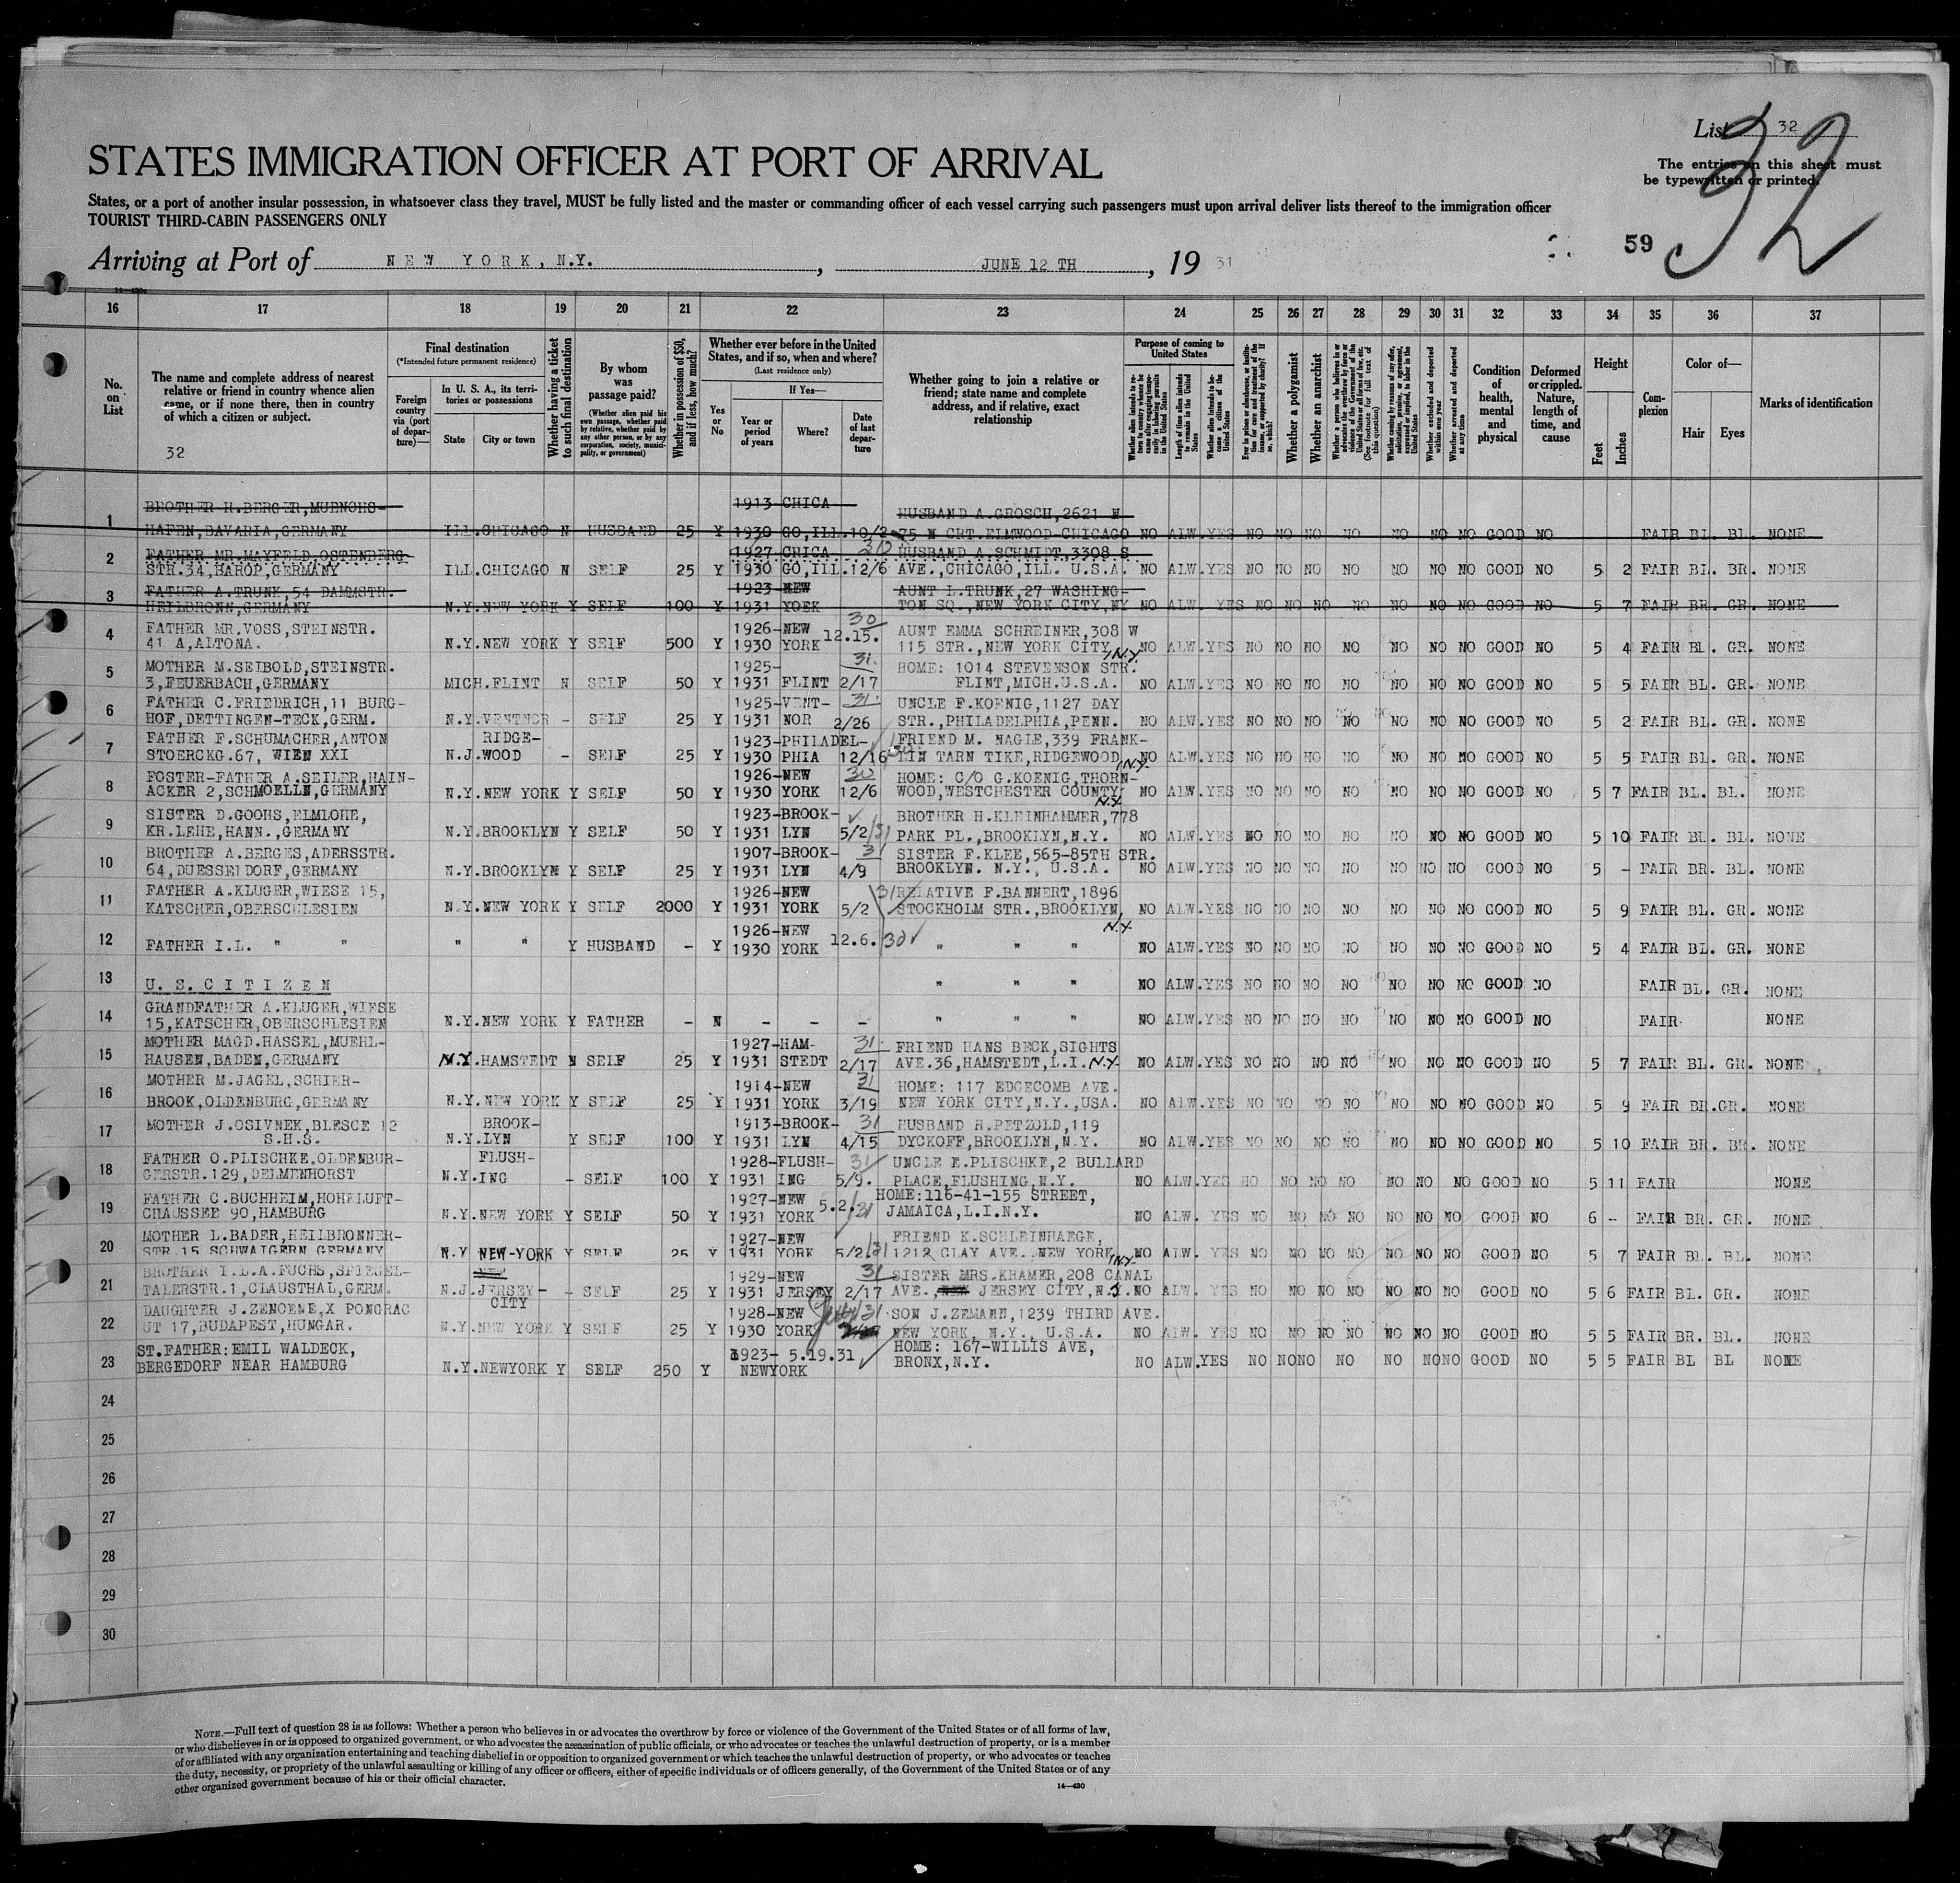 List 32
32
The entries on this sheet must
be typewritten or printed.
STATES IMMIGRATION OFFICER AT PORT OF ARRIVAL
States, or a port of another insular possession, in whatsoever class they travel, MUST be fully listed and the master or commanding officer of each vessel carrying such passengers must upon arrival deliver lists thereof to the immigration officer
TOURIST THIRD-CABIN PASSENGERS ONLY
59
Arriving at Port of NEW YORK, N.Y. , JUNE 12 TH , 19 31
16 17 18 19 20 21 22 23 24 25 26 27 28 29 30 31 32 33 34 35 36 37
No. on List
The name and complete address of nearest relative or friend in country whence alien came, or if none there, then in country of which a citizen or subject.
32
Final destination
(*Intended future permanent residence)
Foreign country via (port of departure)—
In U. S. A., its territories or possessions
State
City or town
Whether having a ticket to such final destination
By whom was passage paid?
(Whether alien paid his own passage, whether paid by relative, whether paid by any other person, or by any corporation, society, municipality, or government)
Whether in possession of $50, and if less, how much?
Whether ever before in the United States, and if so, when and where?
(Last residence only)
Yes or No
If Yes—
Year or period of years
Where?
Date of last departure
Whether going to join a relative or friend; state name and complete address, and if relative, exact relationship
Purpose of coming to United States
Whether alien intends to return to country whence he came after engaging temporarily in laboring pursuits in the United States
Length of time alien intends to remain in the United States
Whether alien intends to become a citizen of the United States
Ever in prison or almshouse, or institution for care and treatment of the insane, or supported by charity? If so, which?
Whether a polygamist
Whether an anarchist
(See footnote for full text of this question)
Whether excluded and deported within one year
Whether arrested and deported at any time
Condition of health, mental and physical
Deformed or crippled. Nature, length of time, and cause
Height
Feet
Inches
Complexion
Color of—
Hair
Eyes
Marks of identification
1 BROTHER H.BERGER,MUENCHS- 1913-CHICA HUSBAND A.GROSCH,2621 N
HAFEN,BAVARIA,GERMANY ILL.CHICAGO N HUSBAND 25 Y 1930 GO,ILL.10/2 75 N CRT.ELMWOOD-CHICAGO NO ALW.YES NO NO NO NO NO NO NO GOOD NO FAIR BL. BL. NONE
2 FATHER MR.MAYFELD,OSTENBERG- 1927-CHICA 30 HUSBAND A.SCHMIDT,3308 S
STR.34,BAROP,GERMANY ILL.CHICAGO N SELF 25 Y 1930 GO,ILL.12/6 AVE.,CHICAGO,ILL. U.S.A. NO ALW.YES NO NO NO NO NO NO NO GOOD NO 5 2 FAIR BL. BR. NONE
3 FATHER A.TRUNK,54 DAMMSTR. 1923-NEW AUNT L.TRUNK,27 WASHING-
HEILBRONN,GERMANY N.Y.NEW YORK Y SELF 100 Y 1931 YORK TON SQ.,NEW YORK CITY,NY NO ALW. YES NO NO NO NO NO NO NO GOOD NO 5 7 FAIR BR. GR. NONE
4 FATHER MR.VOSS,STEINSTR. 1926-NEW 30 AUNT EMMA SCHREINER,308 W
41 A,ALTONA. N.Y.NEW YORK Y SELF 500 Y 1930 YORK 12.15. 115 STR.,NEW YORK CITY, N.Y. NO ALW.YES NO NO NO NO NO NO NO GOOD NO 5 4 FAIR BL. GR. NONE
5 MOTHER M.SEIBOLD,STEINSTR. 1925- 31. HOME: 1014 STEVENSON STR.
3,FEUERBACH,GERMANY MICH.FLINT N SELF 50 Y 1931 FLINT 2/17 FLINT,MICH.U.S.A. NO ALW.YES NO NO NO NO NO NO NO GOOD NO 5 5 FAIR BL. GR. NONE
6 FATHER C.FRIEDRICH,11 BURG- 1925-VENT- 31. UNCLE F.KOENIG,1127 DAY
HOF,DETTINGEN-TECK,GERM. N.Y.VENTNOR - SELF 25 Y 1931 NOR 2/26 STR.,PHILADELPHIA,PENN. NO ALW.YES NO NO NO NO NO NO NO GOOD NO 5 2 FAIR BL. GR. NONE
7 FATHER F.SCHUMACHER,ANTON RIDGE- 1923-PHILADEL- FRIEND M. NAGLE,339 FRANK-
STOERCKG.67, WIEN XXI N.J.WOOD - SELF 25 Y 1930 PHIA 12/16 30. LIN TARN TIKE,RIDGEWOOD, N.Y. NO ALW.YES NO NO NO NO NO NO NO GOOD NO 5 5 FAIR BL. GR. NONE
8 FOSTER-FATHER A.SEILER,HAIN- 1926-NEW 30 HOME: C/O G.KOENIG,THORN-
ACKER 2,SCHMOELLN,GERMANY N.Y.NEW YORK Y SELF 50 Y 1930 YORK 12/6 WOOD,WESTCHESTER COUNTY, N.Y. NO ALW.YES NO NO NO NO NO NO NO GOOD NO 5 7 FAIR BL. BL. NONE
9 SISTER D.GOOHS,ELMLOHE, 1923-BROOK- BROTHER H.KLEINHAMMER,778
KR.LEHE,HANN.,GERMANY N.Y.BROOKLYN Y SELF 50 Y 1931 LYN 5/2/31 PARK PL.,BROOKLYN,N.Y. NO ALW.YES NO NO NO NO NO NO NO GOOD NO 5 10 FAIR BL. BL. NONE
10 BROTHER A.BERGES,ADERSSTR. 1907-BROOK- 31 SISTER F.KLEE,565-85TH STR.
64,DUESSELDORF,GERMANY N.Y.BROOKLYN Y SELF 25 Y 1931 LYN 4/9 BROOKLYN. N.Y., U.S.A. NO ALW.YES NO NO NO NO NO NO NO GOOD NO 5 - FAIR BR. BL. NONE
11 FATHER A.KLUGER,WIESE 15, 1926-NEW 31 RELATIVE F.BANNERT,1896
KATSCHER,OBERSCHLESIEN N.Y.NEW YORK Y SELF 2000 Y 1931 YORK 5/2 STOCKHOLM STR.,BROOKLYN, N.Y. NO ALW.YES NO NO NO NO NO NO NO GOOD NO 5 9 FAIR BL. GR. NONE
12 FATHER I.L. " " " " Y HUSBAND - Y 1926-NEW 1930 YORK 12.6. 30 " " " NO ALW.YES NO NO NO NO NO NO NO GOOD NO 5 4 FAIR BL. GR. NONE
13 U. S. CITIZEN " " " NO ALW.YES NO NO NO NO NO NO NO GOOD NO FAIR BL. GR. NONE
14 GRANDFATHER A.KLUGER,WIESE
15,KATSCHER,OBERSCHLESIEN N.Y.NEW YORK Y FATHER - N - - - " " " NO ALW.YES NO NO NO NO NO NO NO GOOD NO FAIR NONE
15 MOTHER MAGD.HASSEL,MUEHL- 1927-HAM- 31. FRIEND HANS BECK,SIGHTS
HAUSEN,BADEN,GERMANY N.Y.HAMSTEDT N SELF 25 Y 1931 STEDT 2/17 AVE.36,HAMSTEDT,L.I. N.Y. NO ALW.YES NO NO NO NO NO NO NO GOOD NO 5 7 FAIR BL. GR. NONE
16 MOTHER M.JAGEL,SCHIER- 1914-NEW 31 HOME: 117 EDGECOMB AVE.
BROOK,OLDENBURG,GERMANY N.Y.NEW YORK Y SELF 25 Y 1931 YORK 3/19 NEW YORK CITY,N.Y.,USA. NO ALW.YES NO NO NO NO NO NO NO GOOD NO 5 9 FAIR BR.GR. NONE
17 MOTHER J.OSIVNEK,BLESCE 12 BROOK- 1913-BROOK- 31 HUSBAND H.PETZOLD,119
S.H.S. N.Y.LYN Y SELF 100 Y 1931 LYN 4/15 DYCKOFF,BROOKLYN,N.Y. NO ALW.YES NO NO NO NO NO NO NO GOOD NO 5 10 FAIR BR. BR. NONE
18 FATHER O.PLISCHKE,OLDENBUR- FLUSH- 1928-FLUSH- 31 UNCLE E.PLISCHKE,2 BULLARD
GERSTR.129,DELMENHORST N.Y.ING - SELF 100 Y 1931 ING 5/9. PLACE,FLUSHING,N.Y. NO ALW.YES NO NO NO NO NO NO NO GOOD NO 5 11 FAIR NONE
19 FATHER C.BUCHHEIM,HOHELUFT- 1927-NEW HOME:116-41-155 STREET,
CHAUSSEE 90,HAMBURG N.Y.NEW YORK Y SELF 50 Y 1931 YORK 5.2./31 JAMAICA,L.I.N.Y. NO ALW. YES NO NO NO NO NO NO NO GOOD NO 6 - FAIR BR. GR. NONE
20 MOTHER L.BADER,HEILBRONNER- 1927-NEW FRIEND K.SCHLEINHAEGE,
STR.15 SCHWAIGERN GERMANY N.Y NEW-YORK Y SELF 25 Y 1931 YORK 5/2/31 1212 CLAY AVE. NEW YORK, N.Y. NO ALW. YES NO NO NO NO NO NO NO GOOD NO 5 7 FAIR BL. BL. NONE
21 BROTHER I.L.A.FUCHS,SPIEGEL- NEW 1929-NEW 31 SISTER MRS.KRAMER,208 CANAL
TALERSTR.1,CLAUSTHAL,GERM. N.J.JERSEY-CITY - SELF 25 Y 1931 JERSEY 2/17 AVE., JERSEY CITY,N.J. NO ALW. YES NO NO NO NO NO NO NO GOOD NO 5 6 FAIR BL. GR. NONE
22 DAUGHTER J.ZENOENE,X PONGRAC 1928-NEW 31 SON J.ZEMANN,1239 THIRD AVE.
UT 17,BUDAPEST,HUNGAR. N.Y.NEW YORK Y SELF 25 Y 1930 YORK NEW YORK, N.Y., U.S.A. NO ALW. YES NO NO NO NO NO NO NO GOOD NO 5 5 FAIR BR. BL. NONE
23 ST.FATHER:EMIL WALDECK, 1923- 5.19.31 HOME: 167-WILLIS AVE,
BERGEDORF NEAR HAMBURG N.Y.NEWYORK Y SELF 250 Y NEWYORK BRONX,N.Y. NO ALW.YES NO NONO NO NO NONO GOOD NO 5 5 FAIR BL BL NONE
24
25
26
27
28
29
30
NOTE.—Full text of question 28 is as follows: Whether a person who believes in or advocates the overthrow by force or violence of the Government of the United States or of all forms of law,
or who disbelieves in or is opposed to organized government, or who advocates the assassination of public officials, or who advocates or teaches the unlawful destruction of property, or is a member
of or affiliated with any organization entertaining and teaching disbelief in or opposition to organized government or which teaches the unlawful destruction of property, or who advocates or teaches
the duty, necessity, or propriety of the unlawful assaulting or killing of any officer or officers, either of specific individuals or of officers generally, of the Government of the United States or of any
other organized government because of his or their official character.
14—430